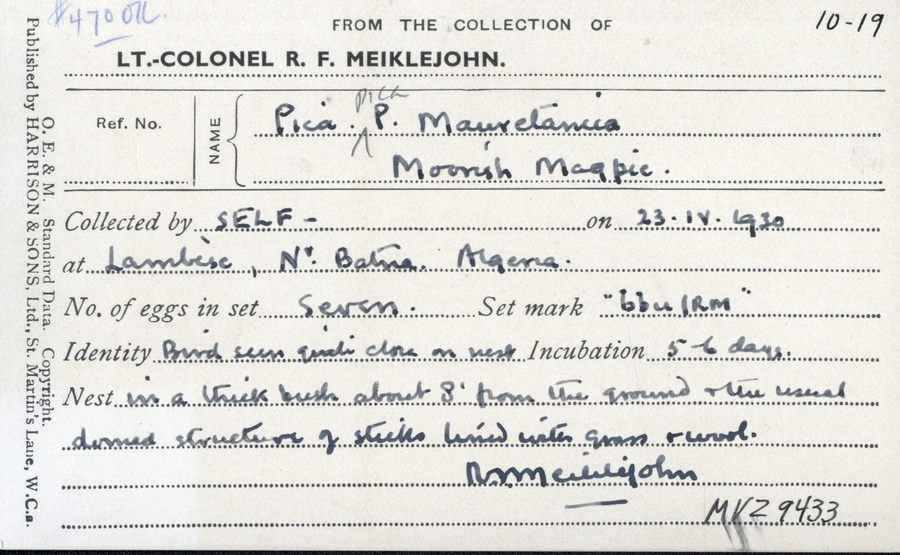 #470 OK
10-19
FROM THE COLLECTION OF
LT.-COLONEL R. F. MEIKLEJOHN.
Ref. No.
NAME
pica
Pica . P. Mauretanica
Moorish Magpie.
Collected by SELF - on 23.IV.1930
at Lambèse, Nr. Batna. Algeria.
No. of eggs in set Seven. Set mark "bbu/RM"
Identity Bird seen quite close on nest Incubation 5-6 days.
Nest in a thick bush about 8' from the ground & the usual
domed structure of sticks lined with grass & wool.
RMeiklejohn
MVZ 9433
O. E. & M. Standard Data. Copyright.
Published by HARRISON & SONS, Ltd., St. Martin's Lane, W.C.2.